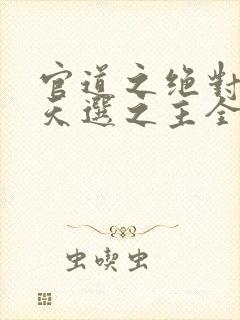 官道之绝對
天選之主全
虫喫虫